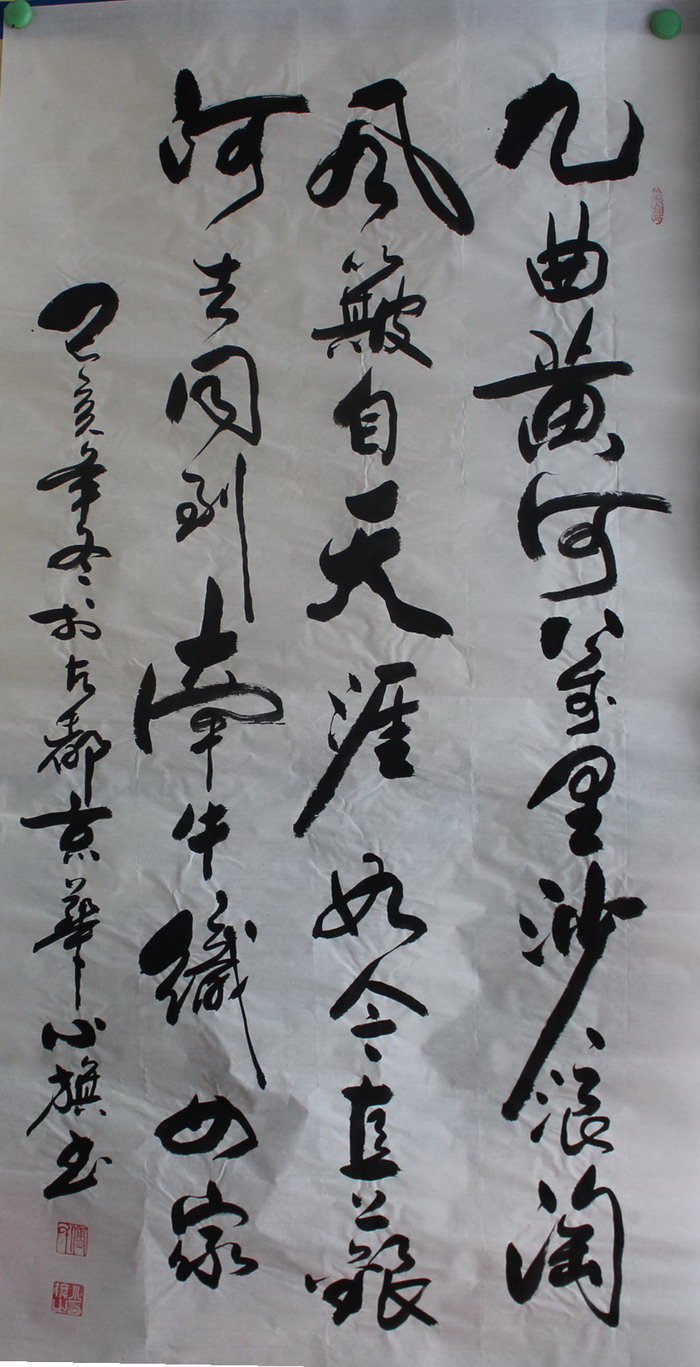 九曲黄河萬里沙浪淘
风簸自天涯如今直上銀
河去同到牽牛織女家
己亥年冬於古都京華旗书